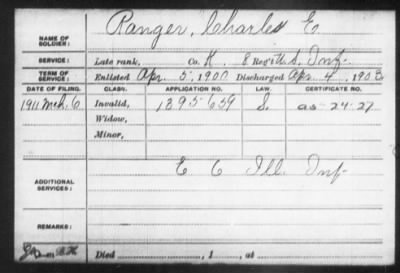 NAME OF SOLDIER: Ranger, Charles E.
SERVICE: Late rank, Co. K. 8 Reg't U.S. Inf.
TERM OF SERVICE: Enlisted Apr. 5, 1900 Discharged Apr. 4, 1903
DATE OF FILING. CLASS. APPLICATION NO. LAW. CERTIFICATE NO.
1911 Mch. 6 Invalid, 1395659 S.
Widow,
Minor,
ADDITIONAL SERVICES: E 6 Ill. Inf.
REMARKS:
Died , 1 , at